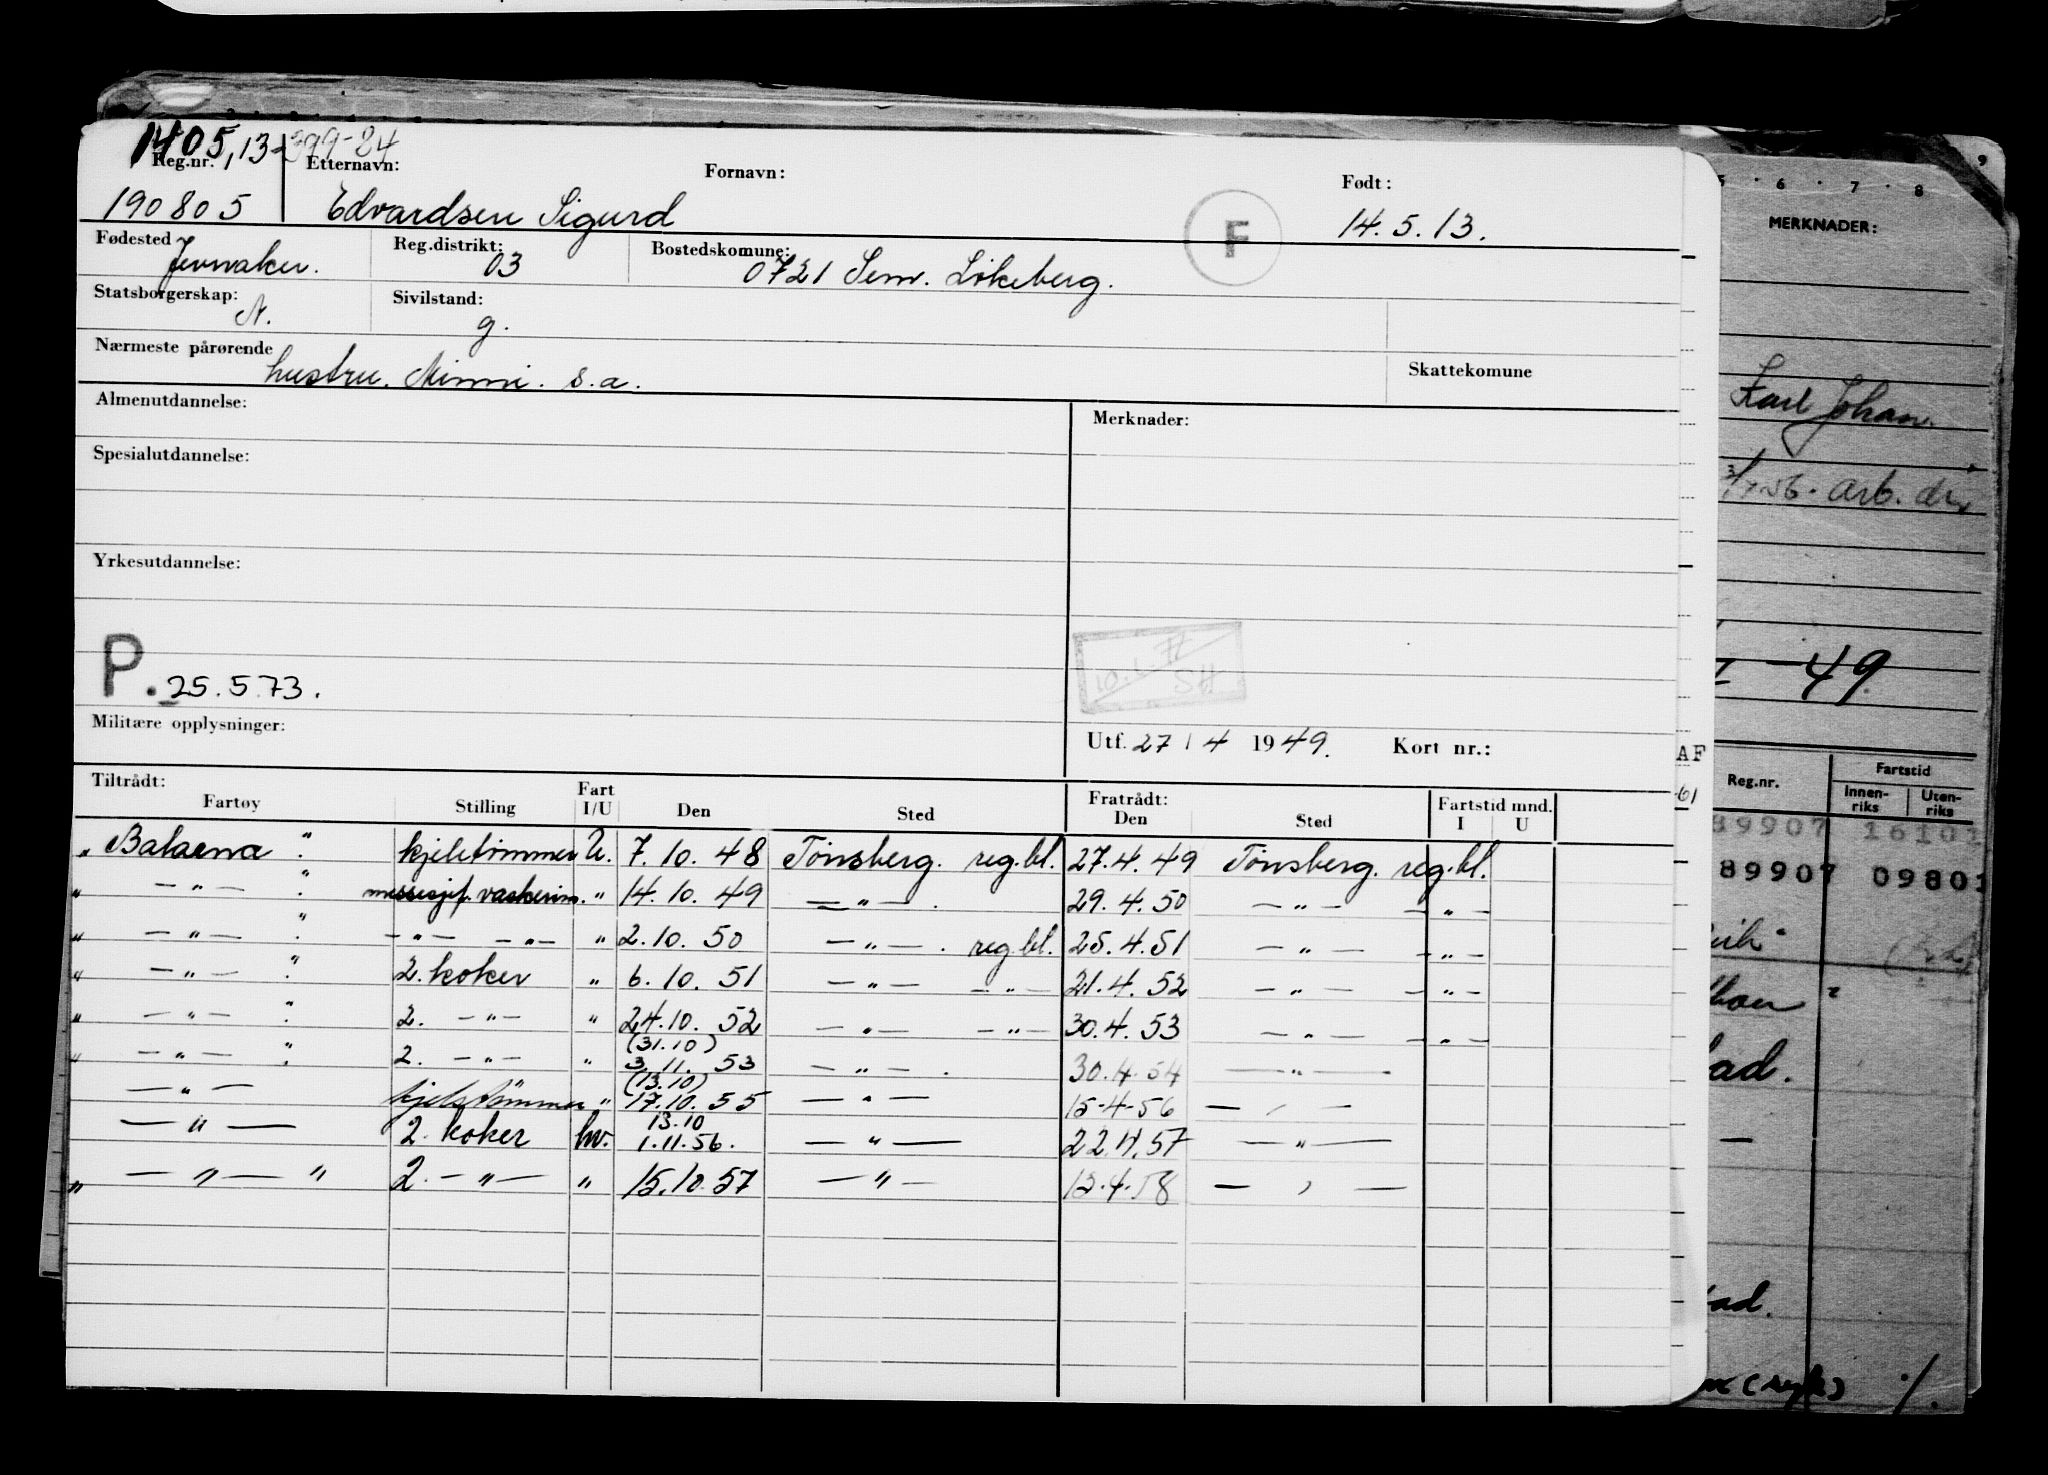 1405,13-399-24
Reg.nr. Etternavn: Fornavn: Født:
190805 Edvardsen Sigurd F 14.5.13.
Fødested Jevnaker. Reg.distrikt: 03 Bostedskomune: 0721 Sem. Løkeberg.
Statsborgerskap: N. Sivilstand: g.
Nærmeste pårørende hustru. Minni. s.a. Skattekomune
Almenutdannelse: Merknader:
Spesialutdannelse:
Yrkesutdannelse:
P. 25.5.73. SH
Militære opplysninger: Utf. 27/4 1949. Kort nr.:
Tiltrådt: Fart Fratrådt: Fartstid mnd.
Fartøy Stilling I/U Den Sted Den Sted I U
" Balaena " kjeletømmer U. 7.10.48 Tønsberg. reg.bl. 27.4.49 Tønsberg. reg.bl.
" — " — " messegt. vaskerim. " 14.10.49 — " — . 29.4.50 — " — — " —
" — " — " — " — — " — " 2.10.50 — " — . reg.bl. 25.4.51 — " — — " —
" — " — " 2. koker " 6.10.51 — " — — " — 21.4.52 — " — — " —
" — " — " 2. — " — " 24.10.52 — " — — " — 30.4.53 — " — — " —
(31.10)
" — " — " 2. — " — " 3.11.53 — " — . 30.4.54 — " —
(13.10)
— " — kjeletømmer " 17.10.55 — " — 15-4-56 — " —
13.10
— " — 2. koker hv. 1.11.56. — " — 22.4.57 — " —
" — " — " 2. — " — " 15.10.57 — " — 13.4.58 — " —
5 · 6 · 7 · 8 9
MERKNADER:
Karl Johan.
arb.
-49
AF
61
Reg.nr. Fartstid
Innenriks Utenriks
89907 16101
89907 09801
ad.
—
ad.